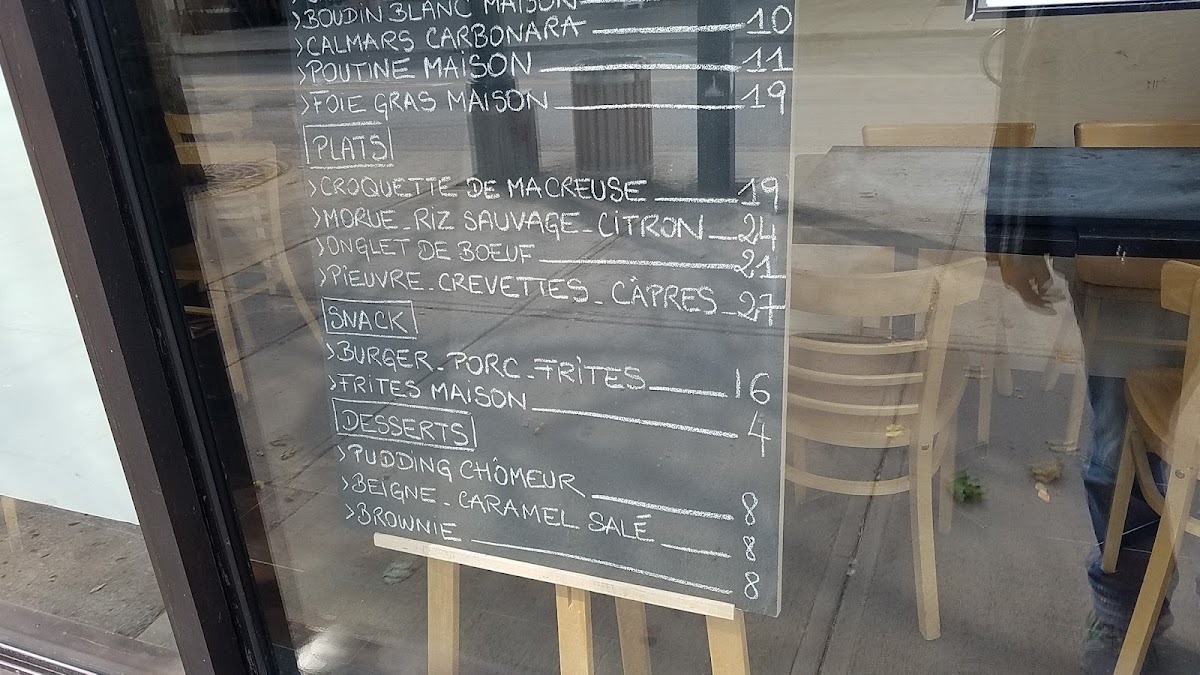 >BOUDIN BLANC MAISON
>CALMARS CARBONARA 10
>POUTINE MAISON 11
>FOIE GRAS MAISON 19
PLATS
>CROQUETTE DE MACREUSE 19
>MORUE_RIZ SAUVAGE_CITRON 24
>ONGLET DE BOEUF 21
>PIEUVRE_CREVETTES_CÂPRES 27
SNACK
>BURGER_PORC_FRITES 16
>FRITES MAISON 4
DESSERTS
>PUDDING CHÔMEUR 8
>BEIGNE_CARAMEL SALÉ 8
>BROWNIE 8